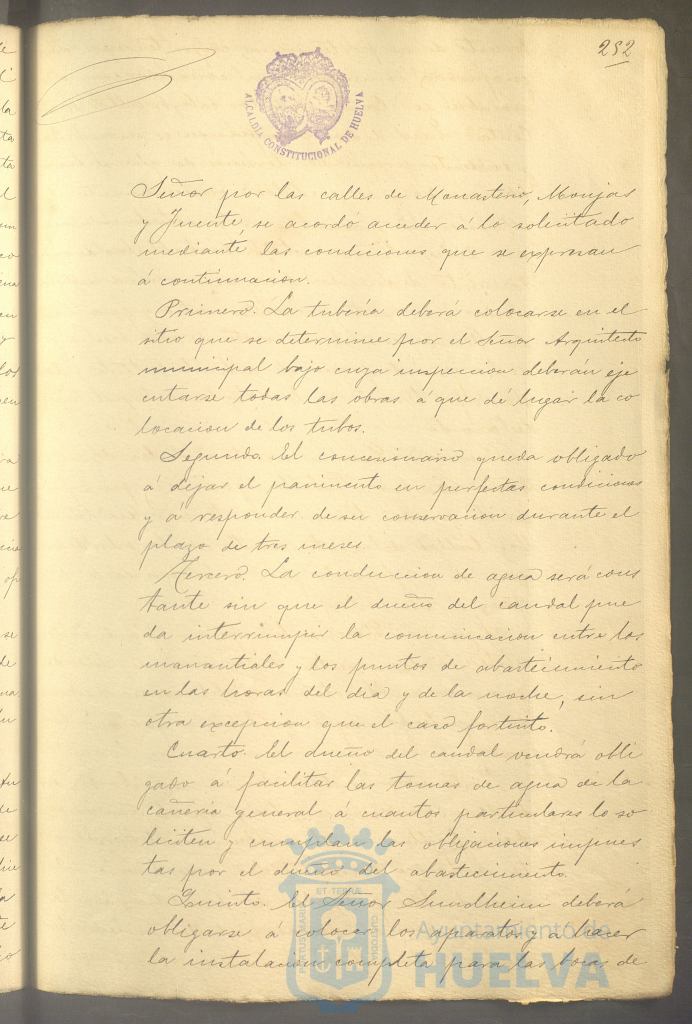 252
ALCALDIA CONSTITUCIONAL DE HUELVA
Señor por las calles de Monasterio, Monjas
y Fuente, se acordó acceder á lo solicitado
mediante las condiciones que se expresan
á continuacion.
Primero. La tubería deberá colocarse en el
sitio que se determine por el Señor Arquitecto
municipal bajo cuya inspeccion deberán eje
cutarse todas las obras á que dé lugar la co
locacion de los tubos.
Segundo. El concesionario queda obligado
á dejar el pavimento en perfectas condiciones
y á responder de su conservacion durante el
plazo de tres meses
Tercero. La conduccion de agua será cons
tante sin que el dueño del caudal pue
da interrumpir la comunicacion entre los
manantiales y los puntos de abastecimiento
en las horas del dia y de la noche, sin
otra excepcion que el caso fortuito.
Cuarto. El dueño del caudal vendrá obli
gado á facilitar las tomas de agua de la
cañería general á cuantos particulares lo so
liciten y cumplan las obligaciones impues
tas por el dueño del abastecimiento.
Quinto. El Señor Sundheim deberá
obligarse á colocar los aparatos y á hacer
la instalacion completa para las bocas de
Ayuntamiento de
HUELVA